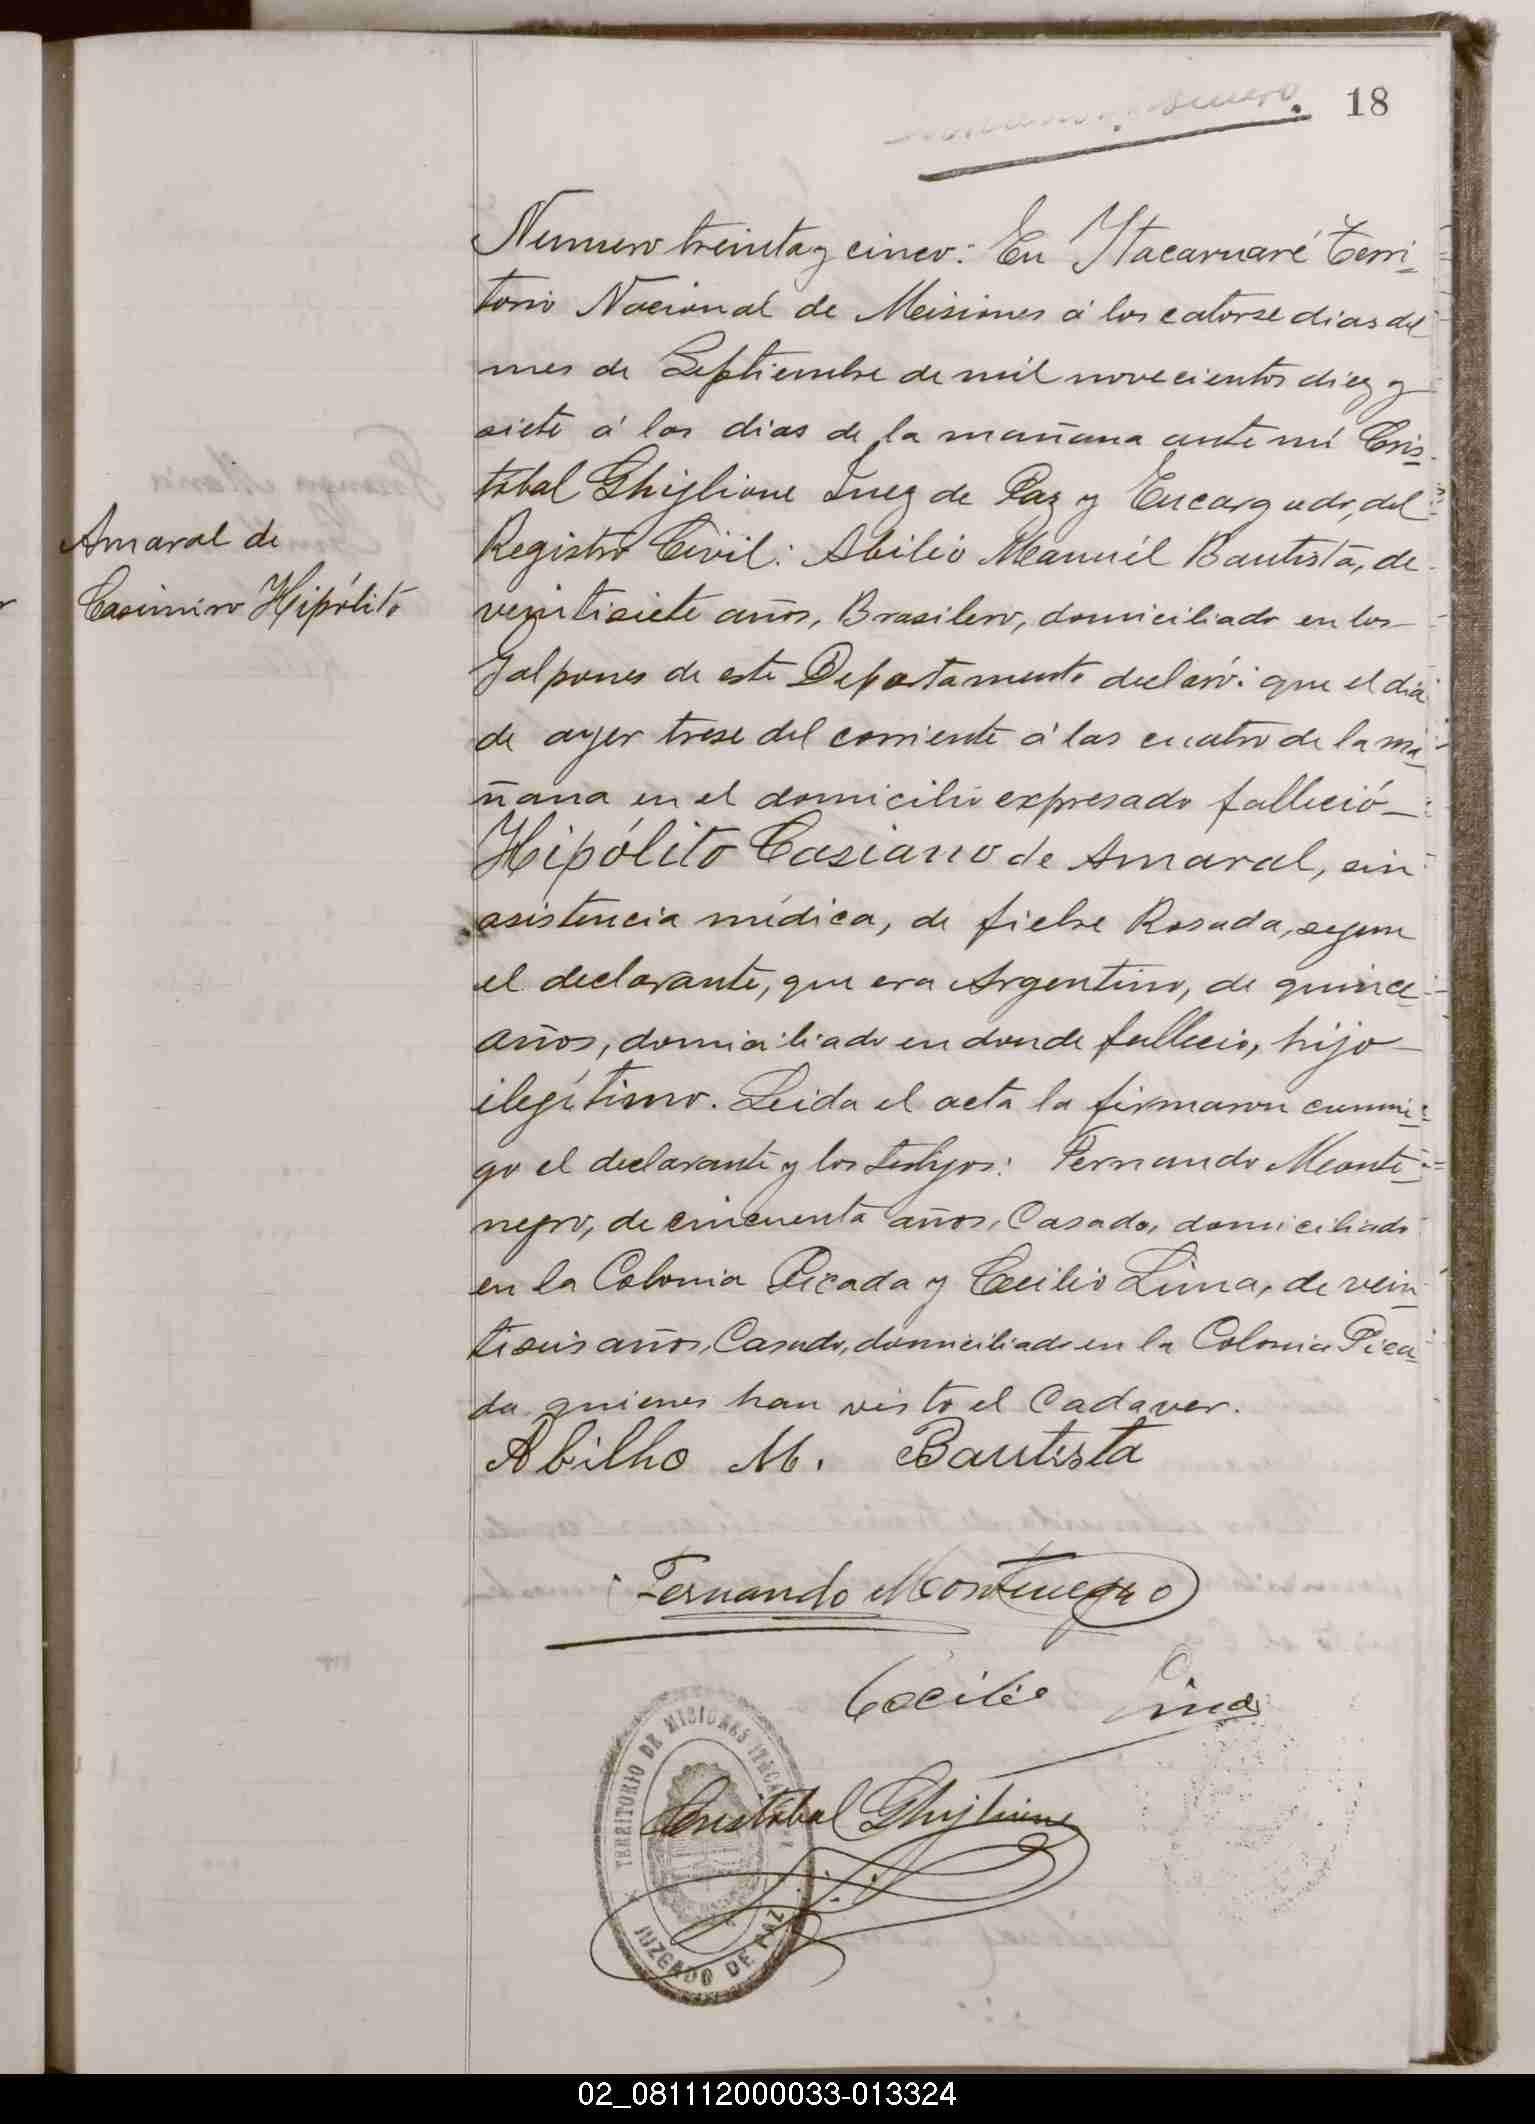 18
Numero treinta y cinco: En Itacaruaré Terri-
torio Nacional de Misiones á los catorse dias del
mes de Septiembre de mil novecientos diez y
siete á las dias de la mañana ante mi Cris-
tobal Ghiglione Juez de Paz y Encargado, del
Registro Civil: Abilio Manuél Bautista, de
veintisiete años, Brasilero, domiciliado en los
Galpones de este Departamento declaró: que el dia
de ayer trese del corriente á las cuatro de la ma-
ñana en el domicilio expresado falleció
Hipólito Casiano de Amaral, sin
asistencia médica, de fiebre Rosada, segun
el declarante, que era Argentino, de quince
años, domiciliado en donde fallecio, hijo
ilegítimo. Leida el acta la firmaron cunmi-
go el declarante y los testigos: Fernando Monte-
negro, de cincuenta años, Casado, domiciliado
en la Colonia Picada y Cecilio Lima, de vein-
tiseis años, Casado, domiciliado en la Colonia Pica-
da quienes han visto el Cadaver.
Amaral de
Casimiro Hipólito
Abilho M. Bautista
Fernando Montenegro
Cecilio Lima
Cristobal Ghiglione
TERRITORIO DE MISIONES
JUZGADO DE PAZ
02_081112000033-013324